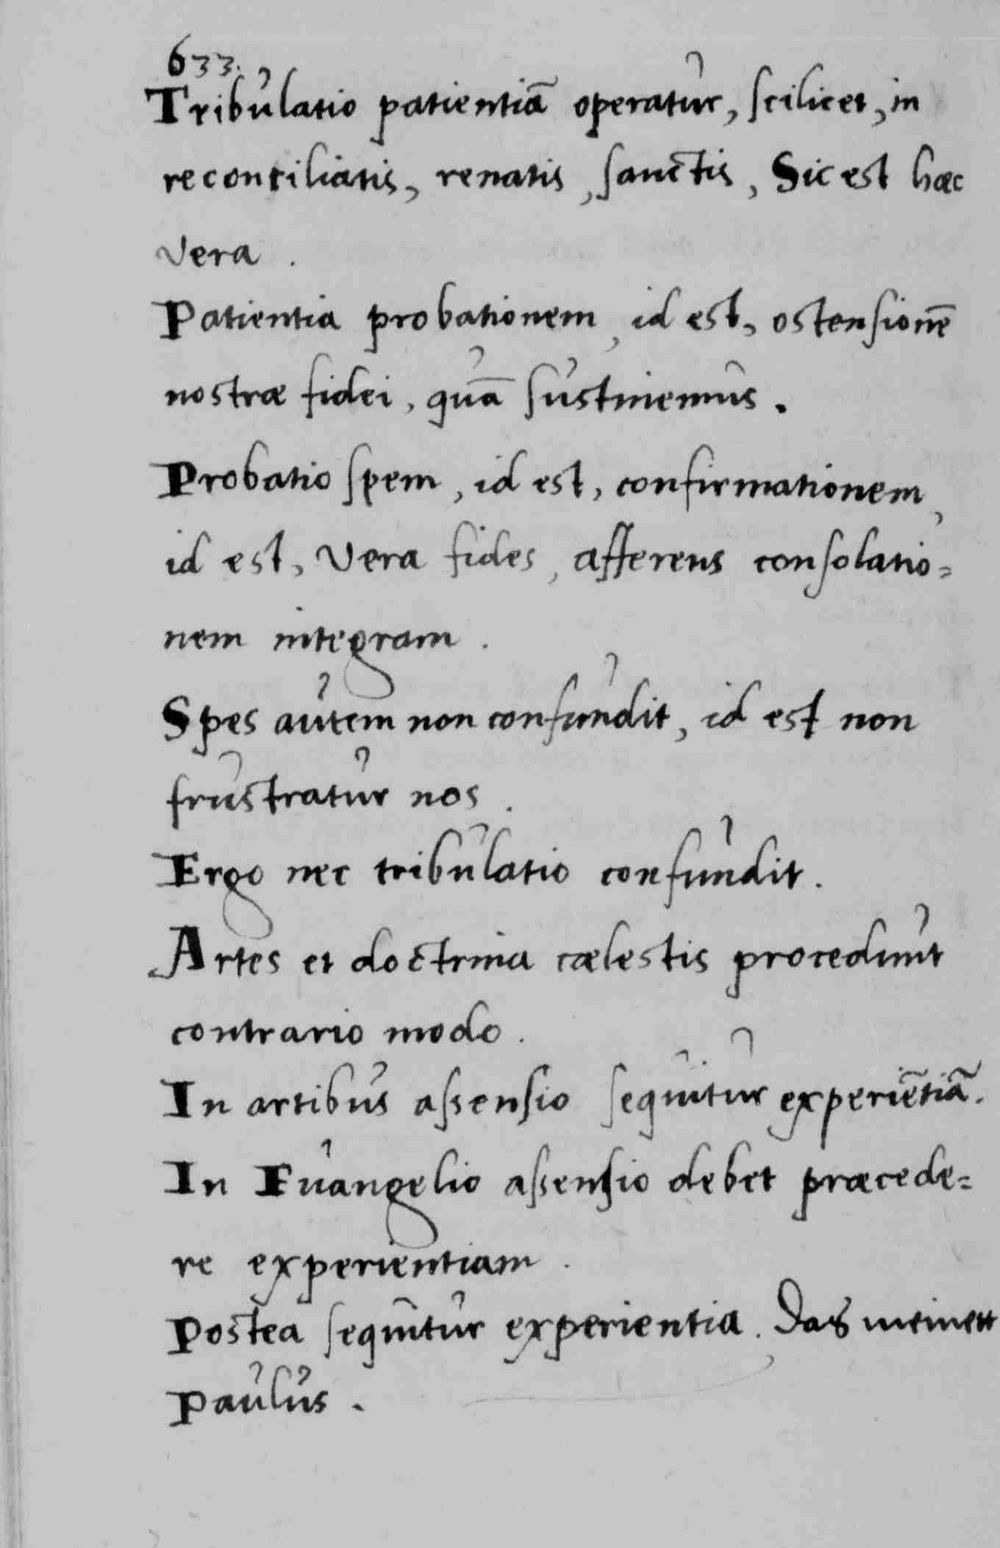 633.
Tribulatio patientiã operatur, scilicet, in
reconciliatis, renatis, sanctis, Sic est hæc
vera.
Patientia probationem, id est, ostensionẽ
nostræ fidei, quã sustinemus.
Probatio spem, id est, confirmationem,
id est, vera fides, afferens consolatio=
nem integram.
Spes autem non confundit, id est non
frustratur nos.
Ergo nec tribulatio confundit.
Artes et doctrina cælestis procedunt
contrario modo.
In artibus assensio sequitur experiẽtiã.
In Euangelio assensio debet præcede=
re experientiam.
Postea sequitur experientia. Das meinett
Paulus.